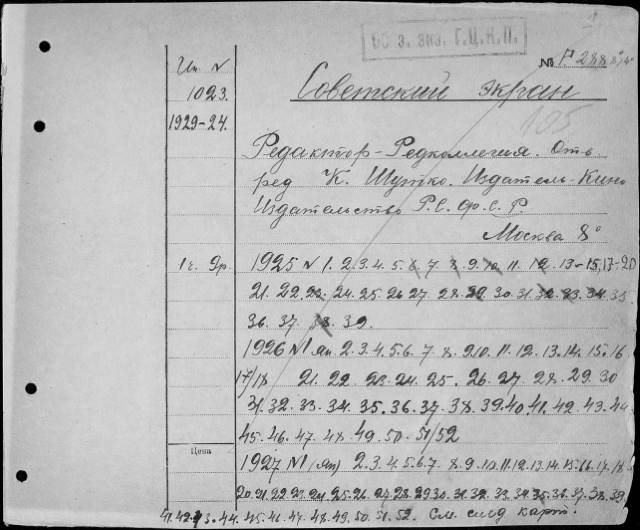 Об. з. экз. Г.Ц.К.П.
№ Р 288
Ин. N
1023.
1929-24.
Советский экран
105
Редактор-Редколлегия. Отв.
ред К. Шутко. Издатель-Кино
Издательство Р.С.Ф.С.Р.
Москва 8°
1925 N 1. 2. 3. 4. 5. 6. 7 8. 9. 10. 11. 12. 13-15, 17-20
21. 22. 23. 24. 25. 26 27. 28. 29 30. 31. 32. 33. 34. 35
36. 37. 38. 39.
1926 N1 ян 2. 3. 4. 5. 6. 7. 8. 9. 10. 11. 12. 13. 14. 15. 16
17/18 21. 22. 23. 24. 25. 26. 27. 28. 29. 30
31. 32. 33. 34. 35. 36. 37. 38. 39. 40. 41. 42. 43. 44
45. 46. 47. 48. 49. 50. 51/52
Цена
1927 N1 (Ян) 2. 3. 4. 5. 6. 7. 8. 9. 10. 11. 12. 13. 14. 15. 16. 17. 18
20. 21. 22. 23. 24. 25. 26. 27. 28. 29. 30. 31. 32. 33. 34. 35. 36. 37. 38. 39.
41. 42. 43. 44. 45. 46. 47. 48. 49. 50. 51. 52. См. след карт.